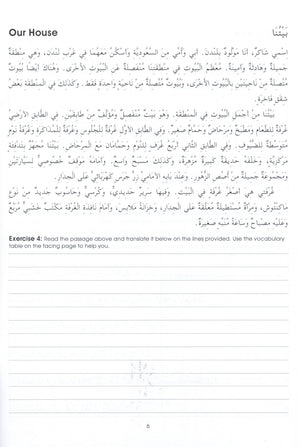 Our House بَيْتُنَا
اِسْمِي شَاكِرٌ، أَنَا مَوْلُودٌ بِلَنْدَن. أَبِي وَأُمِّي مِن السُّعُودِيَّة وَأَسْكُنُ مَعَهُمَا فِي غَرْبِ لَنْدَن، وَهِيَ مَنْطِقَةٌ
جَمِيلَةٌ وَهَادِئَةٌ وَأَمِينَةٌ. مُعْظَمُ الْبُيُوتِ فِي مَنْطِقَتِنَا مُنْفَصِلَةٌ عَنِ الْبُيُوتِ الْأُخْرَى، وَهُنَاكَ أَيْضًا بُيُوتٌ
مُتَّصِلَةٌ مِنْ نَاحِيَتَيْنِ بِالْبُيُوتِ الْأُخْرَى، وَبُيُوتٌ مُتَّصِلَةٌ مِنْ نَاحِيَةٍ وَاحِدَةٍ فَقَط. وَكَذَلِكَ فِي الْمَنْطِقَةِ بَعْضُ
شُقَقٍ فَاخِرَةٍ.
بَيْتُنَا مِنْ أَجْمَلِ الْبُيُوتِ فِي الْمَنْطِقَةِ. وَهُوَ بَيْتٌ مُنْفَصِلٌ وَمُؤَلَّفٌ مِنْ طَابِقَيْنِ. فِي الطَّابِقِ الْأَرْضِيِّ
غُرْفَةٌ لِلطَّعَامِ وَمَطْبَخٌ وَمِرْحَاضٌ وَحَمَّامٌ صَغِيرٌ. وَفِي الطَّابِقِ الْأَوَّلِ غُرْفَةٌ لِلْجُلُوسِ وَغُرْفَةٌ لِلْمُذَاكَرَةِ وَغُرْفَةُ نَوْمٍ
مُتَوَسِّطَةٌ لِلضُّيُوفِ. وَفِي الطَّابِقِ الثَّانِي أَرْبَعُ غُرَفِ نَوْمٍ وَحَمَّامَانِ مَعَ الْمِرْحَاضِ. بَيْتُنَا مُجَهَّزٌ بِتَدْفِئَةٍ
مَرْكَزِيَّةٍ، وَخَلْفَهُ حَدِيقَةٌ كَبِيرَةٌ مُزْهِرَةٌ، وَكَذَلِكَ مَسْبَحٌ وَاسِعٌ. وَأَمَامَهُ مَوْقِفٌ خُصُوصِيٌّ لِسَيَّارَتَيْنِ
وَحَدِيقَةٌ أَمَامِيَّةٌ مَعَ أَصَصٍ الزُّهُورِ. وَعِنْدَ بَابِهِ الْأَمَامِيِّ زِرُّ جَرَسٍ كَهْرَبَائِيٍّ عَلَى الْجِدَارِ.
غُرْفَتِي هِيَ أَصْغَرُ غُرْفَةٍ فِي الْبَيْتِ. فِيهَا سَرِيرٌ حَدِيدِيٌّ، وَكُرْسِيٌّ وَحَاسُوبٌ جَدِيدٌ مِنْ نَوْعِ
مَاكِنْتُوش، وَمِرْآةٌ مُسْتَطِيلَةٌ مُعَلَّقَةٌ عَلَى الْجِدَارِ، وَخِزَانَةُ مَلَابِسَ، وَأَمَامَ نَافِذَةِ الْغُرْفَةِ مَكْتَبٌ خَشَبِيٌّ مُرَبَّعٌ
وَعَلَيْهِ مِصْبَاحٌ وَسَاعَةٌ مُنَبِّهَةٌ صَغِيرَةٌ.
Exercise 4: Read the passage above and translate it below on the lines provided. Use the vocabulary
table on the facing page to help you.